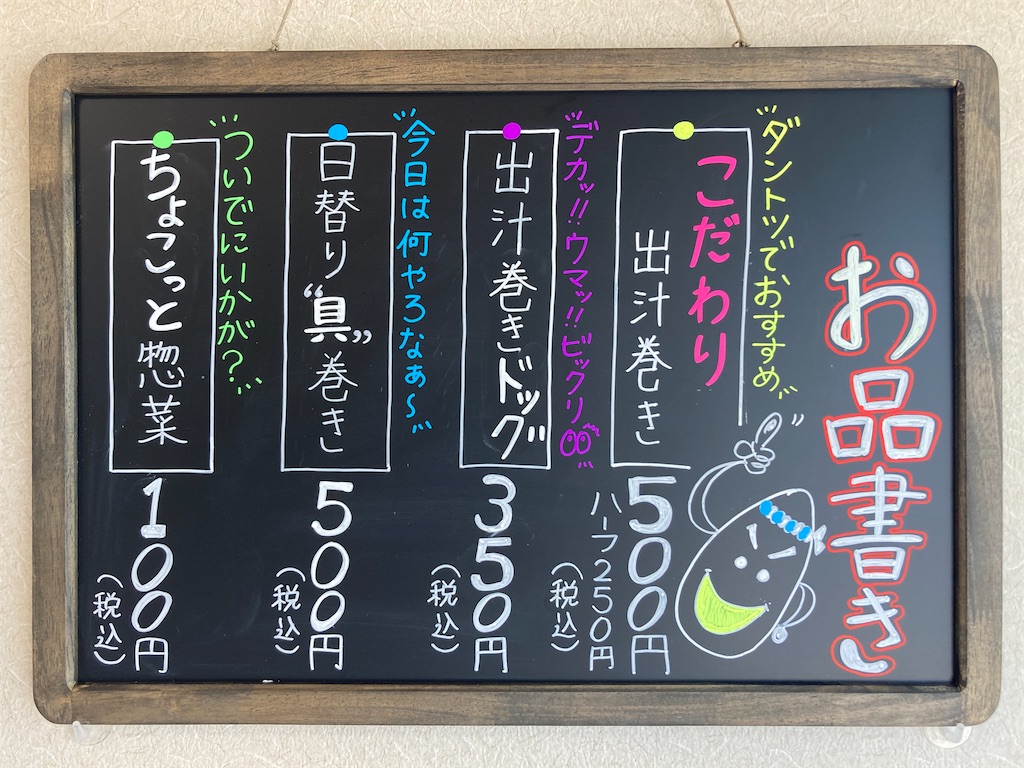 お品書き
"ダントツでおすすめ"
こだわり
出汁巻き
500円
ハーフ250円
(税込)
"デカッ!!ウマッ!!ビックリ"
出汁巻きドッグ
350円
(税込)
"今日は何やろなぁ〜"
日替り"具"巻き
500円
(税込)
"ついでにいかが?"
ちょこっと惣菜
100円
(税込)